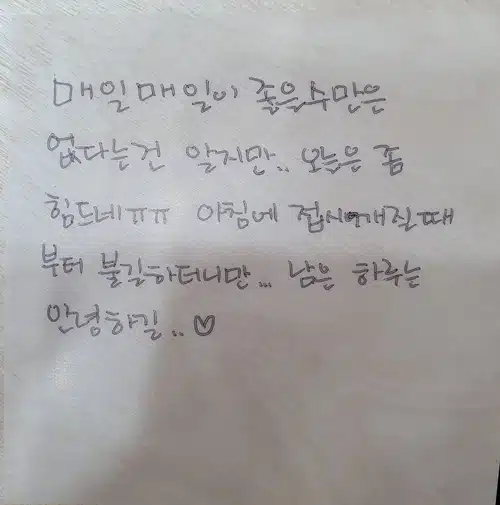 매일매일이 좋을수만은
없다는건 알지만.. 오늘은 좀
힘드네ㅠㅠ 아침에 접시깨질때
부터 불길하더니만... 남은 하루는
안녕하길.. ♡